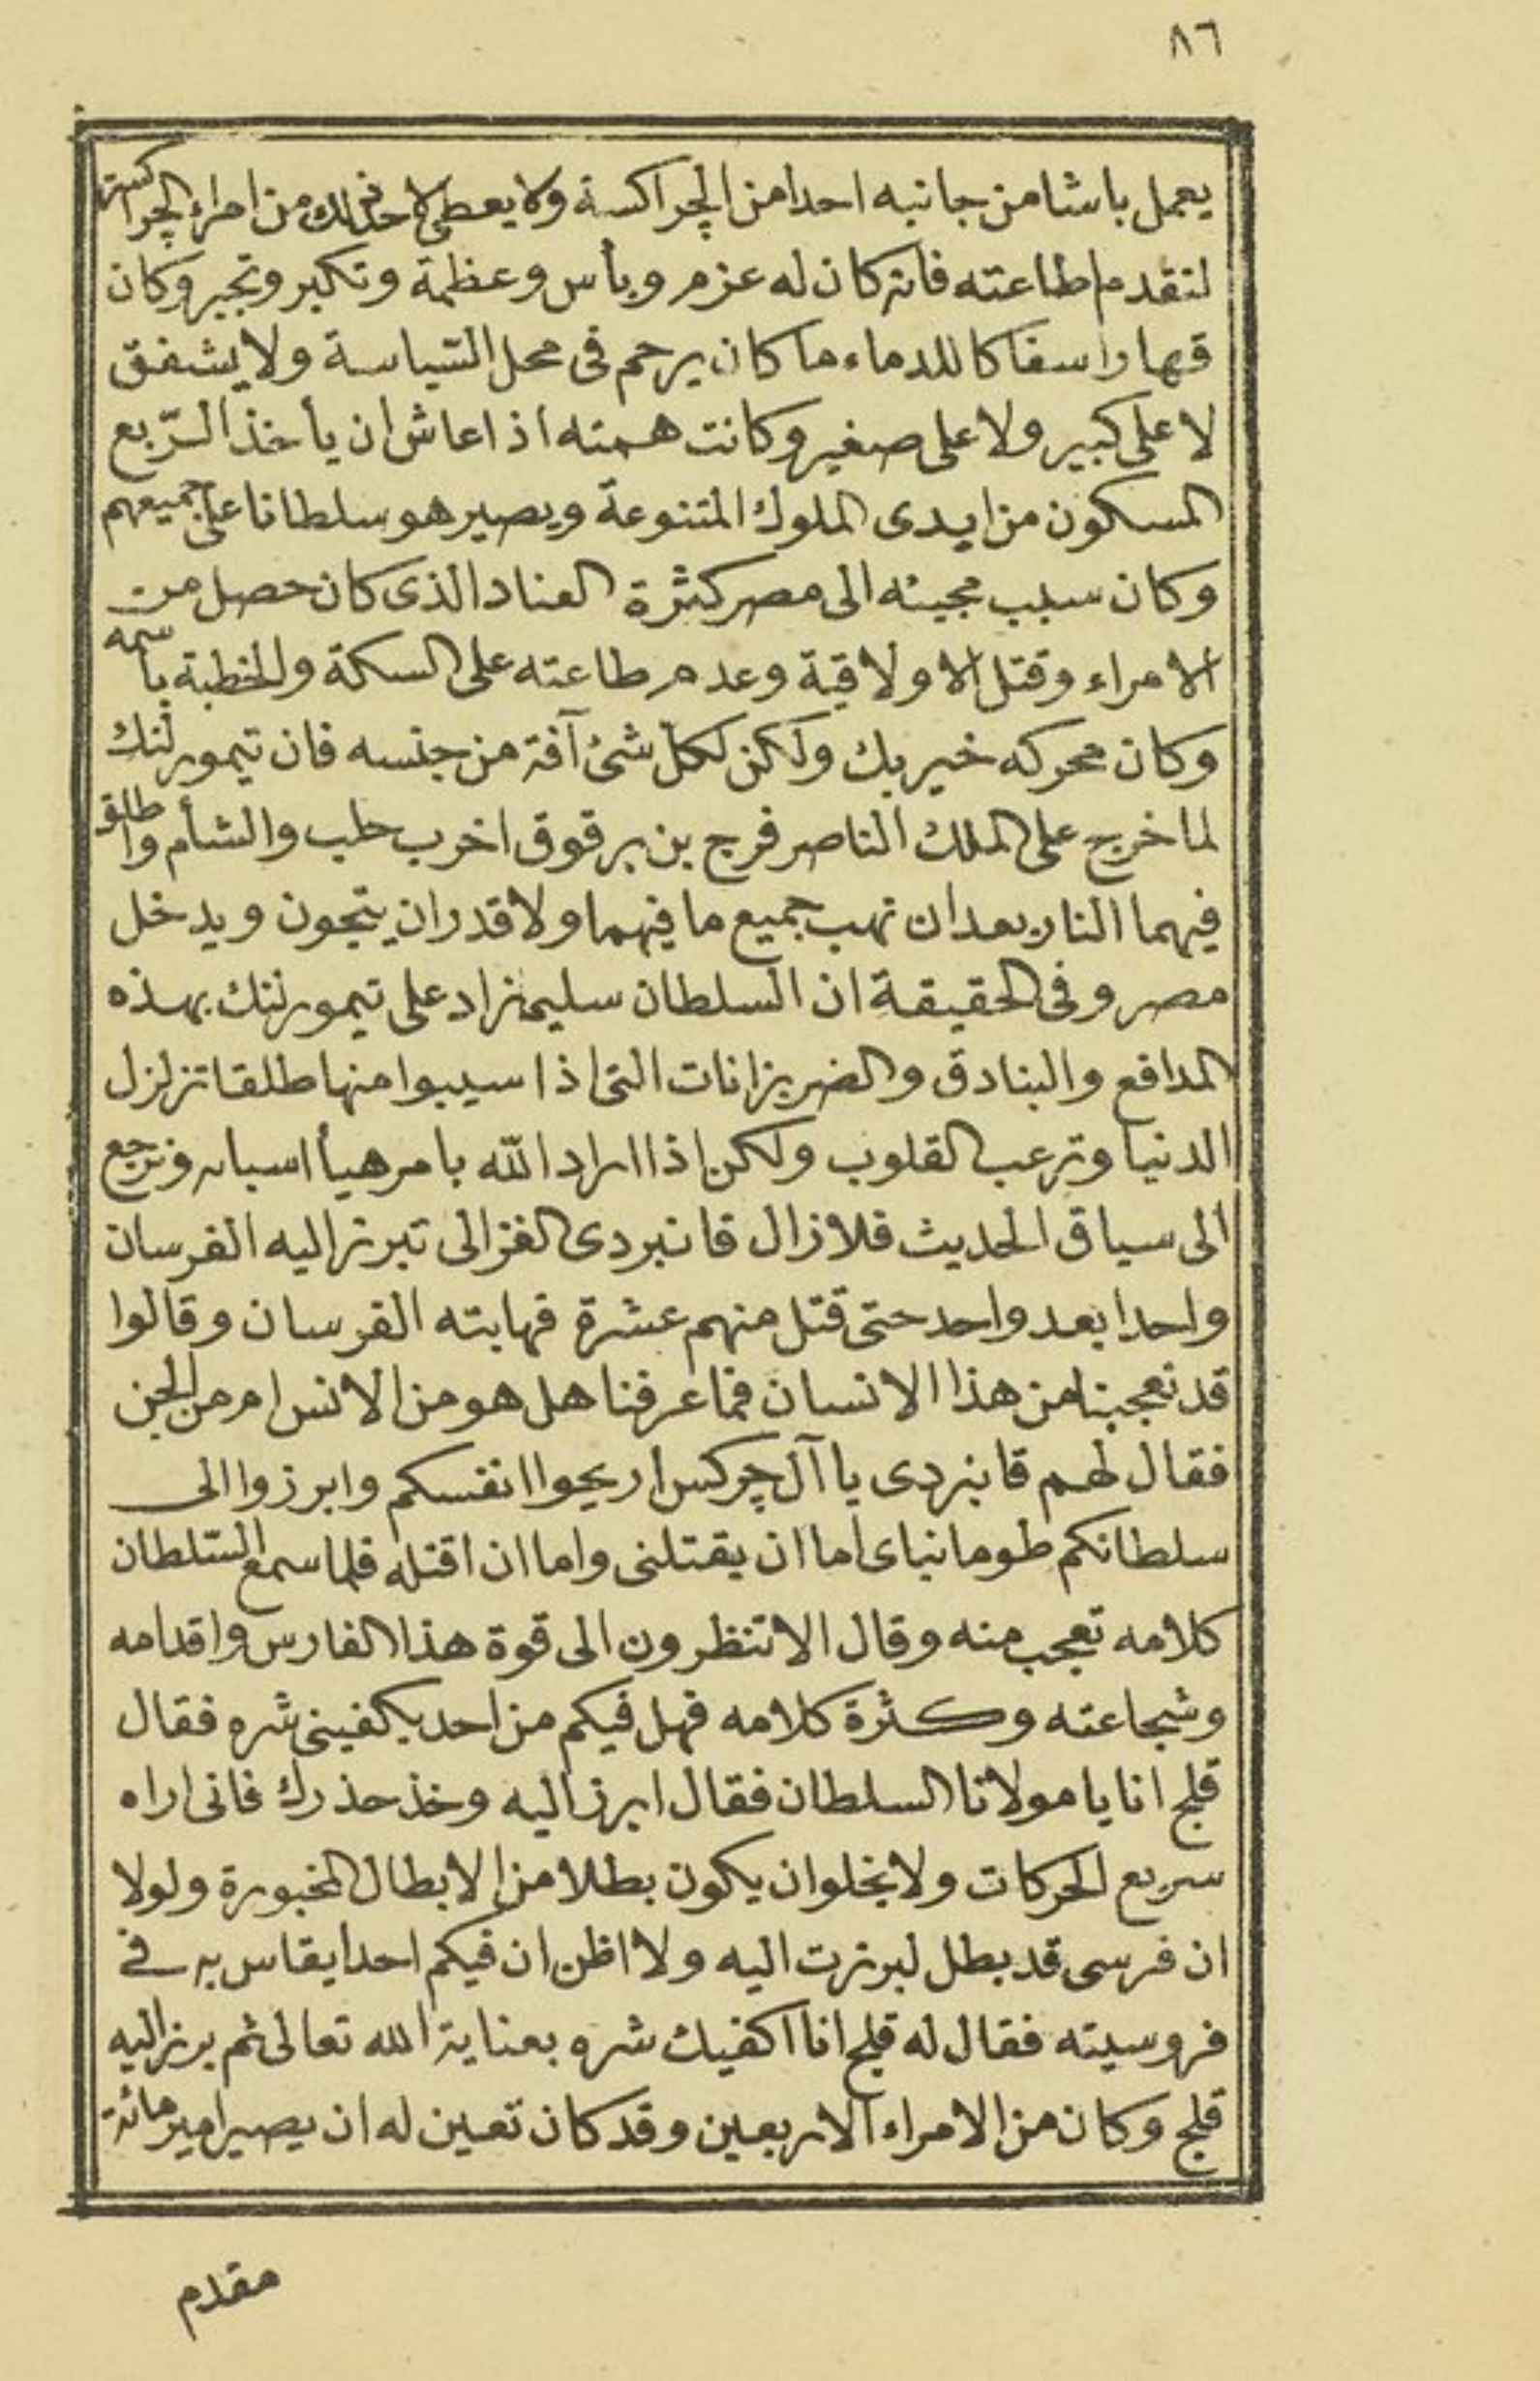 ٨٦
يعمل باشا من جانبه احدا من الچراكسة ولا يعطى لاحد ذلك من امراء الچراكسة
لتقدم اطاعته فانه كان له عزم وبأس وعظمة وتكبر وتجبر وكان
قهارا سفاكا للدماء ما كان يرحم فى محل السّياسة ولا يشفق
لا على كبير ولا على صغير وكانت همته اذا عاش ان يأخذ الرّبع
المسكون من ايدى الملوك المتنوعة ويصير هو سلطانا على جميعهم
وكان سبب مجيئه الى مصر كثرة العناد الذى كان حصل من
الامراء وقتل الاولاقية وعدم طاعته على السكة والخطبة باسمه
وكان محركه خير بك ولكن لكل شئ آفة من جنسه فان تيمور لنك
لما خرج على الملك الناصر فرج بن برقوق اخرب حلب والشأم واطلق
فيهما النار بعد ان نهب جميع ما فيهما ولا قدر ان يتجون ويدخل
مصر وفى الحقيقة ان السلطان سليم زاد على تيمور لنك بهذه
المدافع والبنادق والضربزانات التى اذا سيبوا منها طلقا تزلزل
الدنيا وترعب القلوب ولكن اذا اراد الله بامر هيأ اسبابه ونرجع
الى سياق الحديث فلا زال قانبردى الغزالى تبرز اليه الفرسان
واحدا بعد واحد حتى قتل منهم عشرة فهابته الفرسان وقالوا
قد تعجبنا من هذا الانسان فما عرفنا هل هو من الانس ام من الجن
فقال لهم قانبردى يا آل چركس اريحوا انفسكم وابرزوا الى
سلطانكم طومانباى اما ان يقتلنى واما ان اقتله فلما سمع السّلطان
كلامه تعجب منه وقال الا تنظرون الى قوة هذا الفارس واقدامه
وشجاعته وكثرة كلامه فهل فيكم من احد يكفينى شره فقال
قلج انا يا مولانا السلطان فقال ابرز اليه وخذ حذرك فانى اراه
سريع الحركات ولا يخلو ان يكون بطلا من الابطال المخبورة ولولا
ان فرسى قد بطل لبرزت اليه ولا اظن ان فيكم احدا يقاس به فى
فروسيته فقال له قلج انا اكفيك شره بعناية الله تعالى ثم برز اليه
قلج وكان من الامراء الاربعين وقد كان تعين له ان يصير امير مائة
مقدم